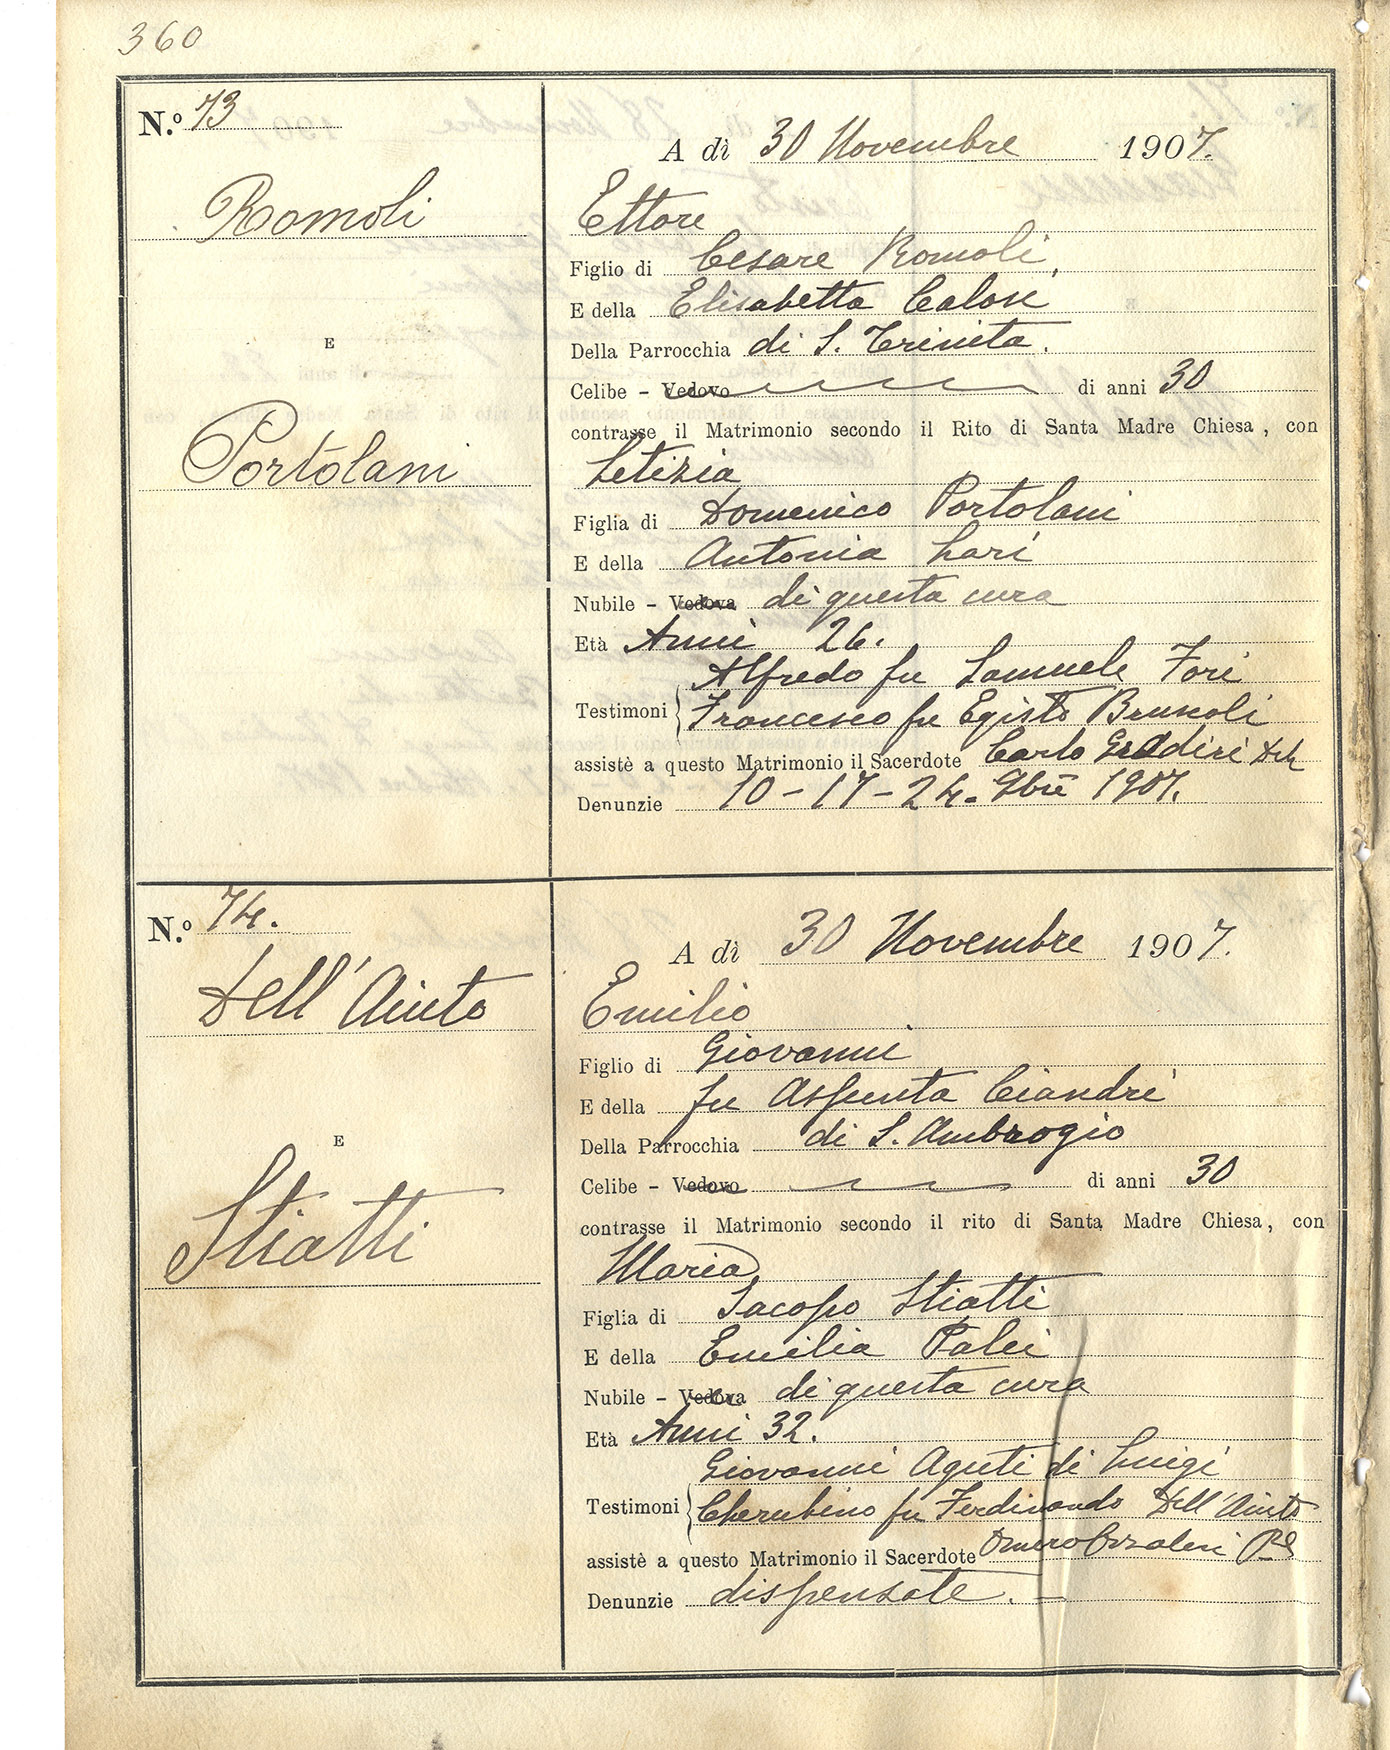 360
N.º 73
A dì 30 Novembre 1907.
Romoli
Ettore
Figlio di Cesare Romoli,
E della Elisabetta Calosi
E
Della Parrocchia di S. Trinita.
Celibe - Vedovo di anni 30
contrasse il Matrimonio secondo il Rito di Santa Madre Chiesa, con
Portolani
Letizia
Figlia di Domenico Portolani
E della Antonia Lari
Nubile - Vedova di questa cura
Età Anni 26.
Alfredo fu Samuele Fori
Testimoni Francesco fu Egisto Brunoli
assistè a questo Matrimonio il Sacerdote Carlo
Denunzie 10 - 17 - 24. 9bre 1907.
N.º 74.
A dì 30 Novembre 1907.
Dell' Aiuto
Emilio
Figlio di Giovanni
E della fu Assunta Ciandri
E
Della Parrocchia di S. Ambrogio
Celibe - Vedovo di anni 30
contrasse il Matrimonio secondo il rito di Santa Madre Chiesa, con
Stiatti
Maria
Figlia di Jacopo Stiatti
E della Emilia Palei
Nubile - Vedova di questa cura
Età Anni 32.
Giovanni Aguti di Luigi
Testimoni Cherubino fu Ferdinando Dell' Aiuto
assistè a questo Matrimonio il Sacerdote
Denunzie dispensate. =